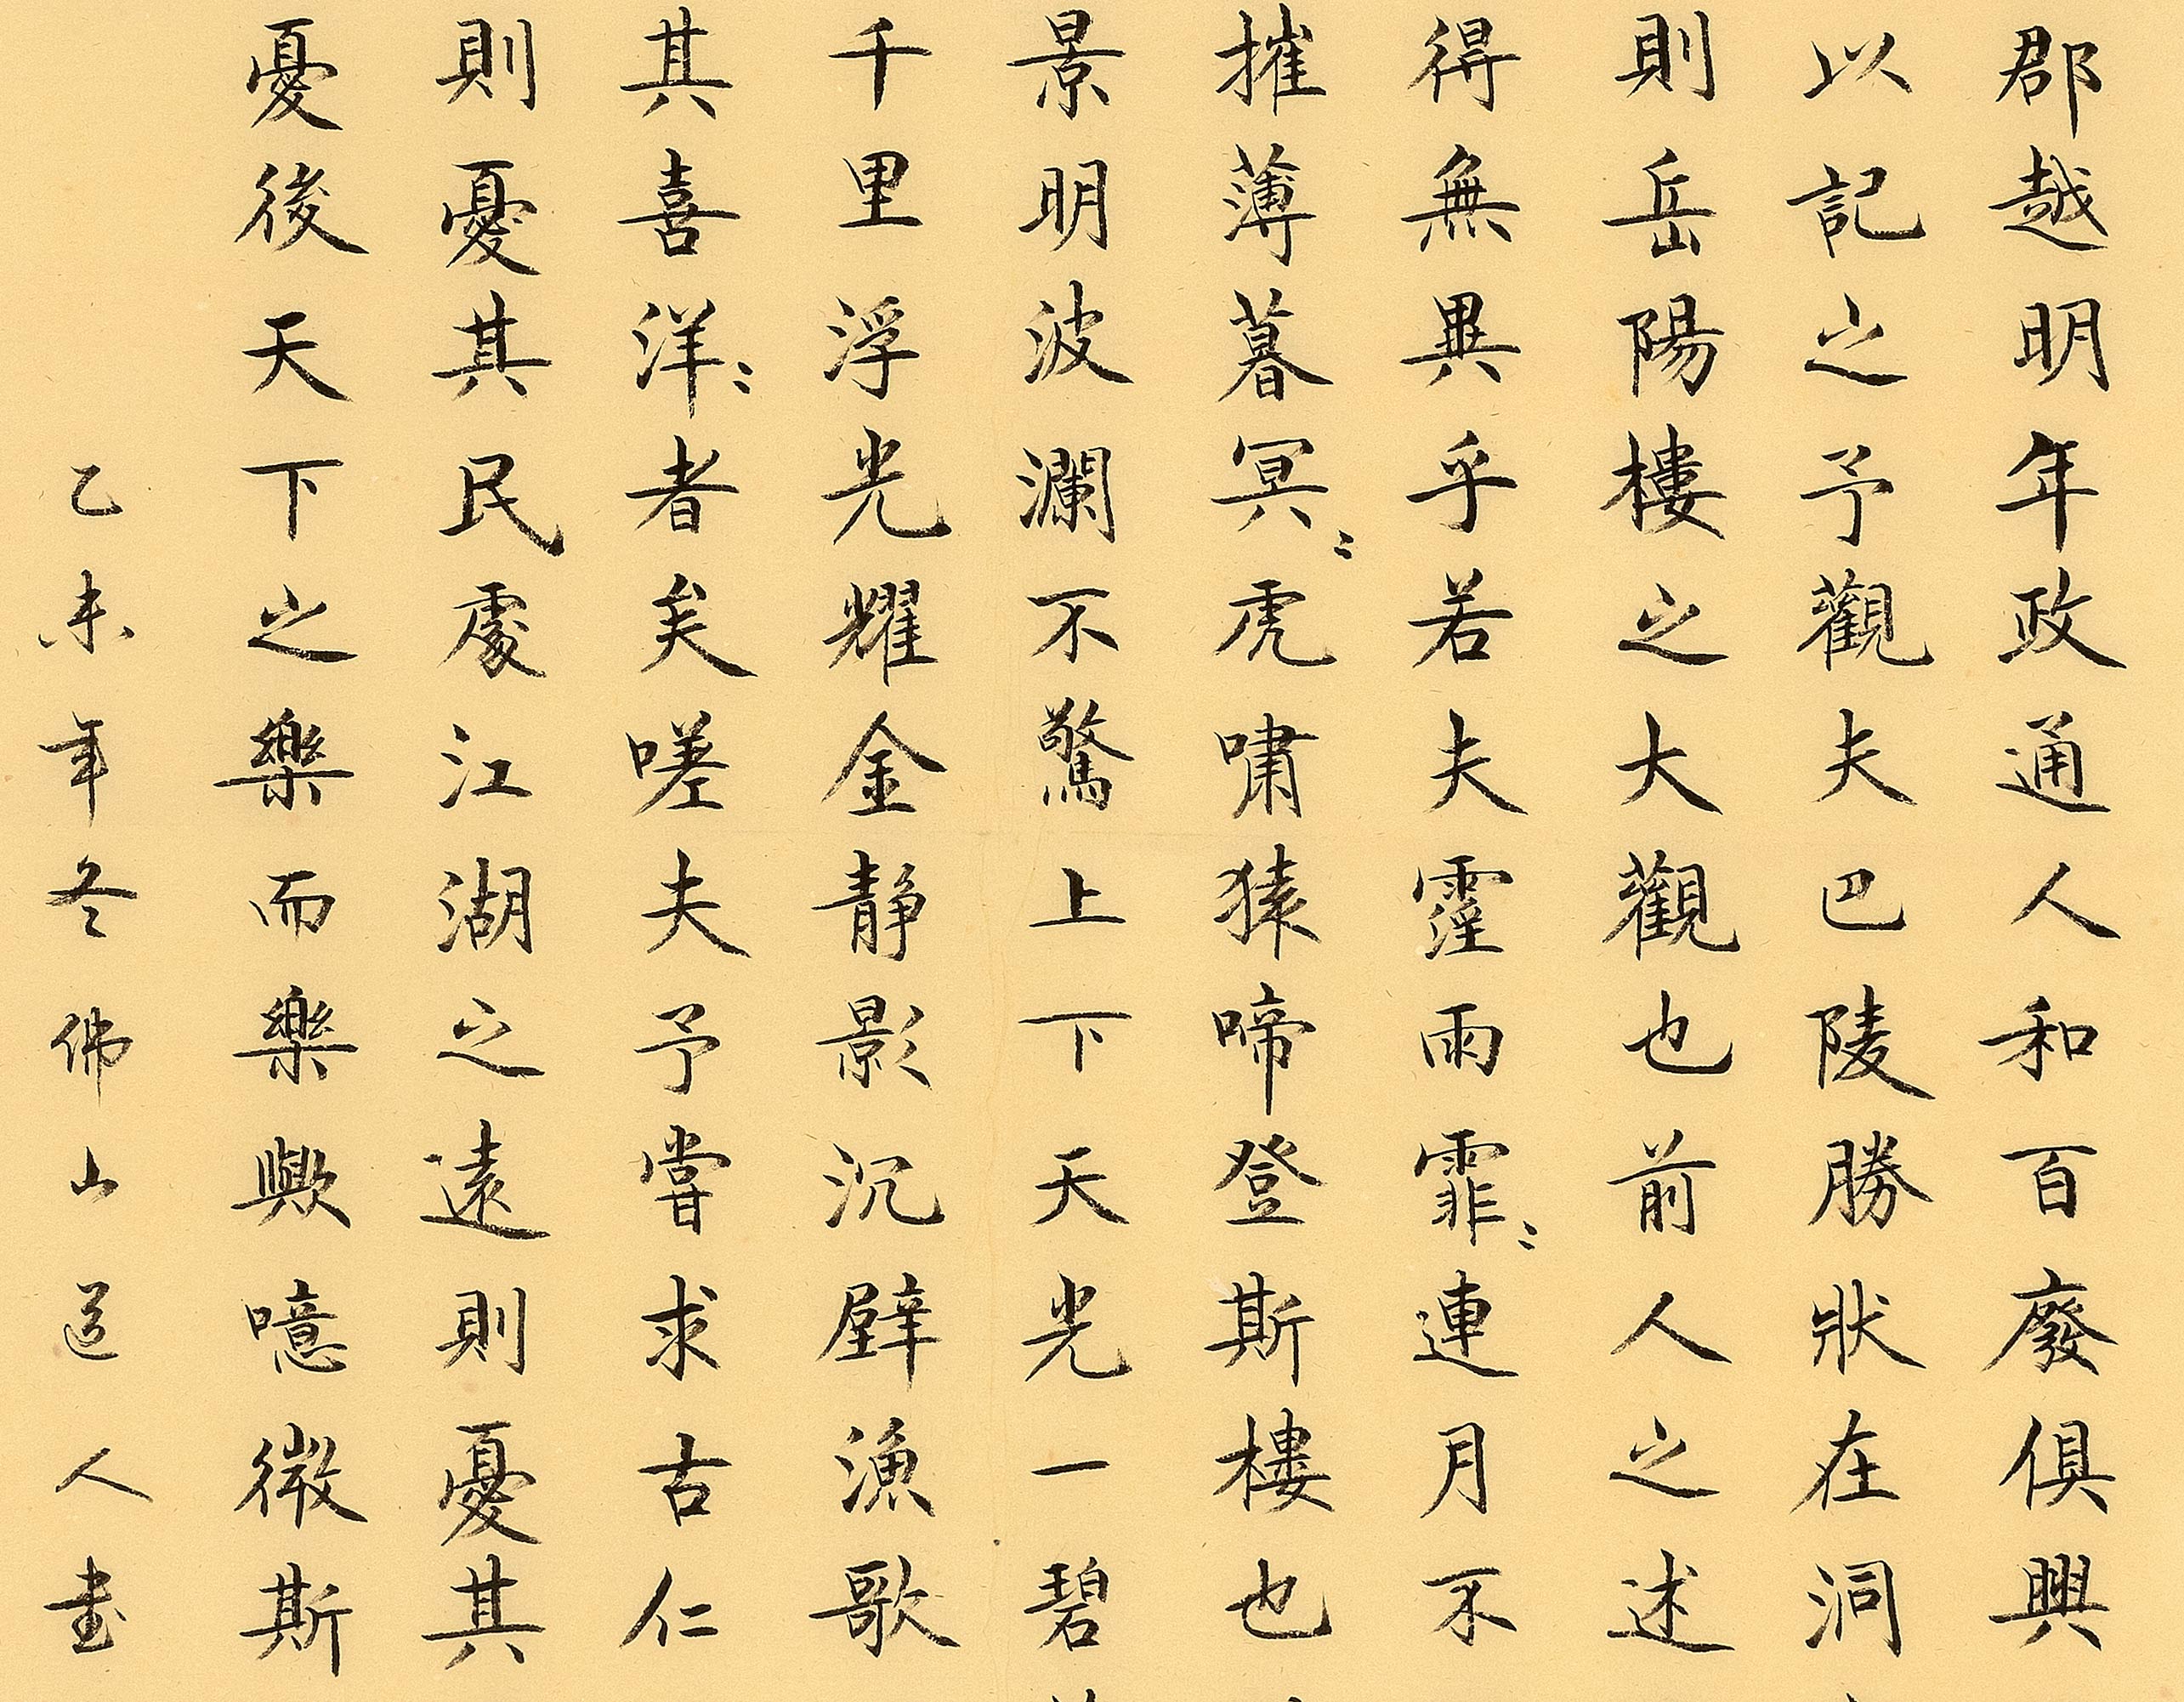 郡越明年政通人和百廢俱興
以記之予觀夫巴陵勝狀在洞
則岳陽樓之大觀也前人之述
得無異乎若夫霪雨霏〻連月不
摧薄暮冥〻虎嘯猿啼登斯樓也
景明波瀾不驚上下天光一碧
千里浮光耀金静影沉璧漁歌
其喜洋〻者矣嗟夫予嘗求古仁
則憂其民處江湖之遠則憂其
憂後天下之樂而樂歟噫微斯
乙未年冬佛山道人书